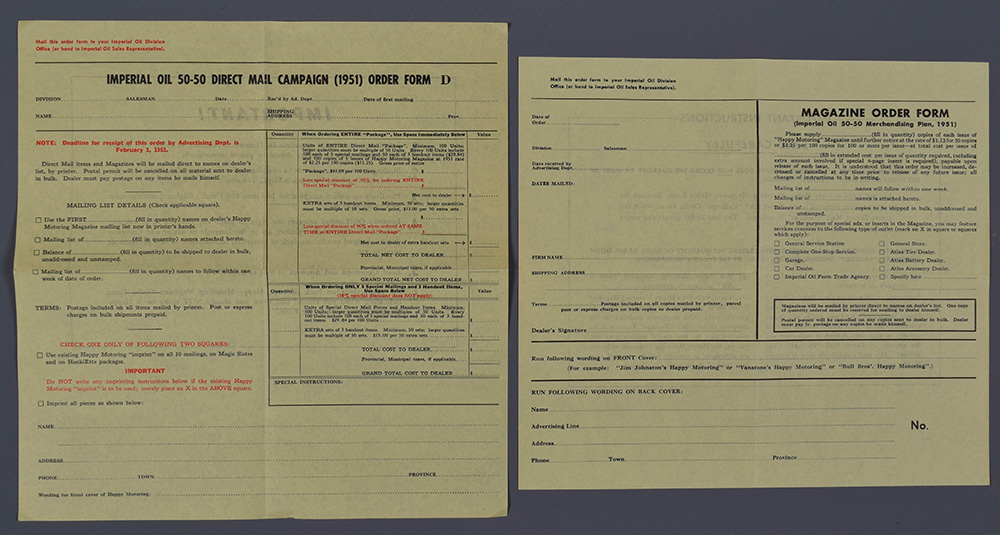 Mail this order form to your Imperial Oil Division
Office (or hand to Imperial Oil Sales Representative).
IMPERIAL OIL 50-50 DIRECT MAIL CAMPAIGN (1951) ORDER FORM D
DIVISION SALESMAN Date Rec'd by Ad. Dept. Date of first mailing
NAME SHIPPING ADDRESS Prov.
NOTE: Deadline for receipt of this order by Advertising Dept. is
February 1, 1951.
Direct Mail items and Magazines will be mailed direct to names on dealer's
list, by printer. Postal permit will be cancelled on all material sent to dealer
in bulk. Dealer must pay postage on any items he mails himself.
MAILING LIST DETAILS (Check applicable square).
Use the FIRST (fill in quantity) names on dealer's Happy
Motoring Magazine mailing list now in printer's hands.
Mailing list of (fill in quantity) names attached hereto.
Balance of (fill in quantity) to be shipped to dealer in bulk,
unaddressed and unstamped.
Mailing list of (fill in quantity) names to follow within one
week of date of order.
TERMS: Postage included on all items mailed by printer. Post or express
charges on bulk shipments prepaid.
CHECK ONE ONLY OF FOLLOWING TWO SQUARES:
Use existing Happy Motoring "imprint" on all 10 mailings, on Magic Slates
and on HankiEtte packages.
IMPORTANT
Do NOT write any imprinting instructions below if the existing Happy
Motoring "imprint" is to be used; merely place an X in the ABOVE square.
Imprint all pieces as shown below:
NAME
ADDRESS
PHONE TOWN PROVINCE
Wording for front cover of Happy Motoring:
Quantity When Ordering ENTIRE "Package", Use Space Immediately Below Value
Units of ENTIRE Direct Mail "Package". Minimum, 100 Units;
larger quantities must be multiple of 50 Units. Every 100 Units include
100 each of 5 special mailings and 50 each of 3 handout items ($29.84)
and 100 copies of 5 issues of Happy Motoring Magazine at 1951 rate
of $2.25 per 100 copies ($11.25). Gross price of entire
"Package", $41.09 per 100 Units $
Less special discount of 10%, for ordering ENTIRE
Direct Mail "Package" $
Net cost to dealer $
EXTRA sets of 3 handout items. Minimum, 50 sets; larger quantities
must be multiple of 50 sets. Gross price, $15.00 per 50 extra sets
$
Less special discount of 10% when ordered AT SAME
TIME as ENTIRE Direct Mail "Package" $
Net cost to dealer of extra handout sets $
TOTAL NET COST TO DEALER $
Provincial, Municipal taxes, if applicable
GRAND TOTAL NET COST TO DEALER $
Quantity. When Ordering ONLY 5 Special Mailings and 3 Handout Items, Value
Use Space Below
(10% special discount does NOT apply)
Units of Special Direct Mail Pieces and Handout Items. Minimum,
100 Units; larger quantities must be multiples of 50 Units. Every
100 Units include 100 each of 5 special mailings and 50 each of 3 hand-
out items. $29.84 per 100 Units
EXTRA sets of 3 handout items. Minimum, 50 sets; larger quantities
must be multiple of 50 sets. $15.00 per 50 extra sets
TOTAL COST TO DEALER $
Provincial, Municipal taxes, if applicable
GRAND TOTAL COST TO DEALER $
SPECIAL INSTRUCTIONS:
Mail this order form to your Imperial Oil Division
Office (or hand to Imperial Oil Sales Representative).
Date of
Order
Division Salesman
Date received by
Advertising Dept.
DATES MAILED:
FIRM NAME
SHIPPING ADDRESS
Terms Postage included on all copies mailed by printer, parcel
post or express charges on bulk copies to dealer prepaid.
Dealer's Signature
MAGAZINE ORDER FORM
(Imperial Oil 50-50 Merchandising Plan, 1951)
Please supply (fill in quantity) copies of each issue of
"Happy Motoring" Magazine until further notice at the rate of $1.13 for 50 copies
or $2.25 per 100 copies for 100 or more per issue—at total cost per issue of
$ (fill in extended cost per issue of quantity required, including
extra amount involved if special 4-page insert is required), payable upon
release of each issue. It is understood that this order may be increased, de-
creased or cancelled at any time prior to release of any future issue; all
changes of instructions to be in writing.
Mailing list of names will follow within one week.
Mailing list of names is attached hereto.
Balance of copies to be shipped in bulk, unaddressed and
unstamped.
For the purpose of special ads. or inserts in the Magazine, you may feature
services common to the following type of outlet (mark an X in square or squares
which apply):
General Service Station General Store.
Complete One-Stop Service. Atlas Tire Dealer.
Garage. Atlas Battery Dealer.
Car Dealer. Atlas Accessory Dealer.
Imperial Oil Farm Trade Agency. Specify here
Magazines will be mailed by printer direct to names on dealer's list. One copy
of quantity ordered must be reserved for mailing to dealer himself.
Postal permit will be cancelled on any copies sent to dealer in bulk. Dealer
must pay postage on any copies he mails himself.
Run following wording on FRONT Cover:
(For example: "Jim Johnston's Happy Motoring" or "Vanstone's Happy Motoring" or "Bull Bros'. Happy Motoring".)
RUN FOLLOWING WORDING ON BACK COVER:
Name
Advertising Line
No.
Address
Phone Town Province